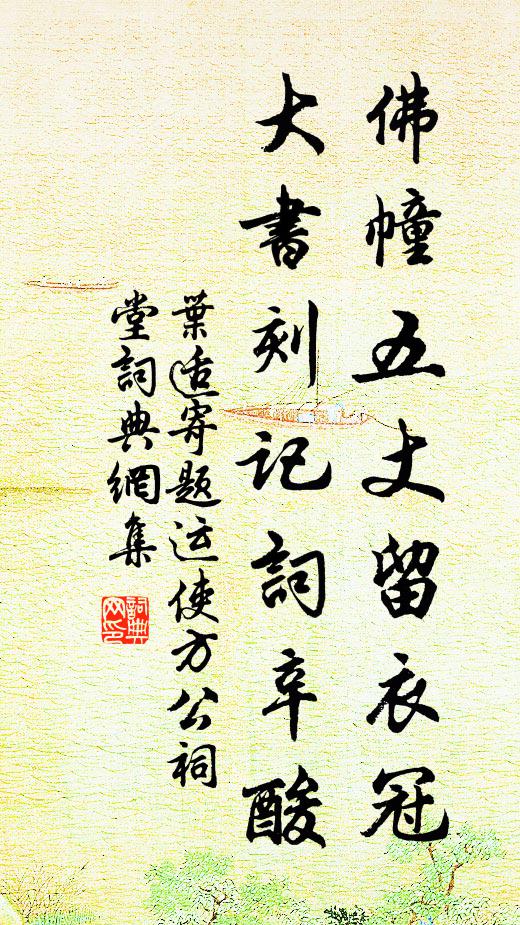 佛幢五丈留衣冠
大書刻記詞辛酸
葉适寄題运使方公祠
堂詞典網集
詞典
网印